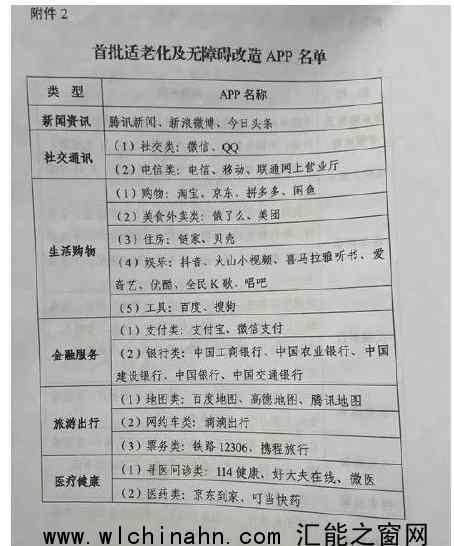 附件2
首批适老化及无障碍改造 APP 名单
类 型 APP 名称
新闻资讯 腾讯新闻、新浪微博、今日头条
社交通讯 (1)社交类：微信、QQ
(2)电信类：电信、移动、联通网上营业厅
生活购物 (1)购物：淘宝、京东、拼多多、闲鱼
(2)美食外卖类：饿了么、美团
(3)住房：链家、贝壳
(4)娱乐：抖音、火山小视频、喜马拉雅听书、爱
奇艺、优酷、全民K歌、唱吧
(5)工具：百度、搜狗
金融服务 (1)支付类：支付宝、微信支付
(2)银行类：中国工商银行、中国农业银行、中国
建设银行、中国银行、中国交通银行
旅游出行 (1)地图类：百度地图、高德地图、腾讯地图
(2)网约车类：滴滴出行
(3)票务类：铁路12306、携程旅行
医疗健康 (1)寻医问诊类：114健康、好大夫在线、微医
(2)医药类：京东到家、叮当快药
www.wlchinahn.com 汇能之窗网